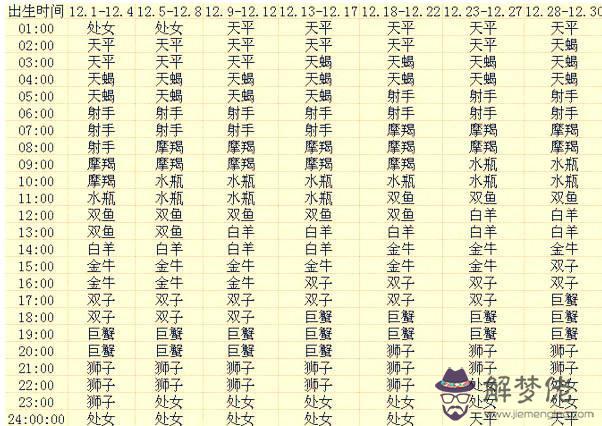 出生时间 12.1-12.4 12.5-12.8 12.9-12.12 12.13-12.17 12.18-12.22 12.23-12.27 12.28-12.30
01:00 处女 处女 天平 天平 天平 天平 天平
02:00 天平 天平 天平 天平 天平 天平 天蝎
03:00 天平 天平 天平 天蝎 天蝎 天蝎 天蝎
04:00 天蝎 天蝎 天蝎 天蝎 天蝎 天蝎 天蝎
05:00 天蝎 天蝎 天蝎 天蝎 射手 射手 射手
06:00 射手 射手 射手 射手 射手 射手 射手
07:00 射手 射手 射手 射手 摩羯 摩羯 摩羯
08:00 射手 摩羯 摩羯 摩羯 摩羯 摩羯 摩羯
09:00 摩羯 摩羯 摩羯 摩羯 摩羯 水瓶 水瓶
10:00 摩羯 水瓶 水瓶 水瓶 水瓶 水瓶 水瓶
11:00 水瓶 水瓶 水瓶 水瓶 双鱼 双鱼 双鱼
12:00 双鱼 双鱼 双鱼 双鱼 双鱼 白羊 白羊
13:00 双鱼 双鱼 白羊 白羊 白羊 白羊 白羊
14:00 白羊 白羊 白羊 白羊 金牛 金牛 金牛
15:00 金牛 金牛 金牛 金牛 金牛 金牛 双子
16:00 金牛 金牛 金牛 双子 双子 双子 双子
17:00 双子 双子 双子 双子 双子 双子 巨蟹
18:00 双子 双子 双子 巨蟹 巨蟹 巨蟹 巨蟹
19:00 巨蟹 巨蟹 巨蟹 巨蟹 巨蟹 巨蟹 巨蟹
20:00 巨蟹 巨蟹 巨蟹 巨蟹 狮子 狮子 狮子
21:00 狮子 狮子 狮子 狮子 狮子 狮子 狮子
22:00 狮子 狮子 狮子 狮子 狮子 处女 处女
23:00 狮子 处女 处女 处女 处女 处女 处女
24:00:00 处女 处女 处女 处女 天平 天平 天平
解梦佬
www.jiemenglao.com